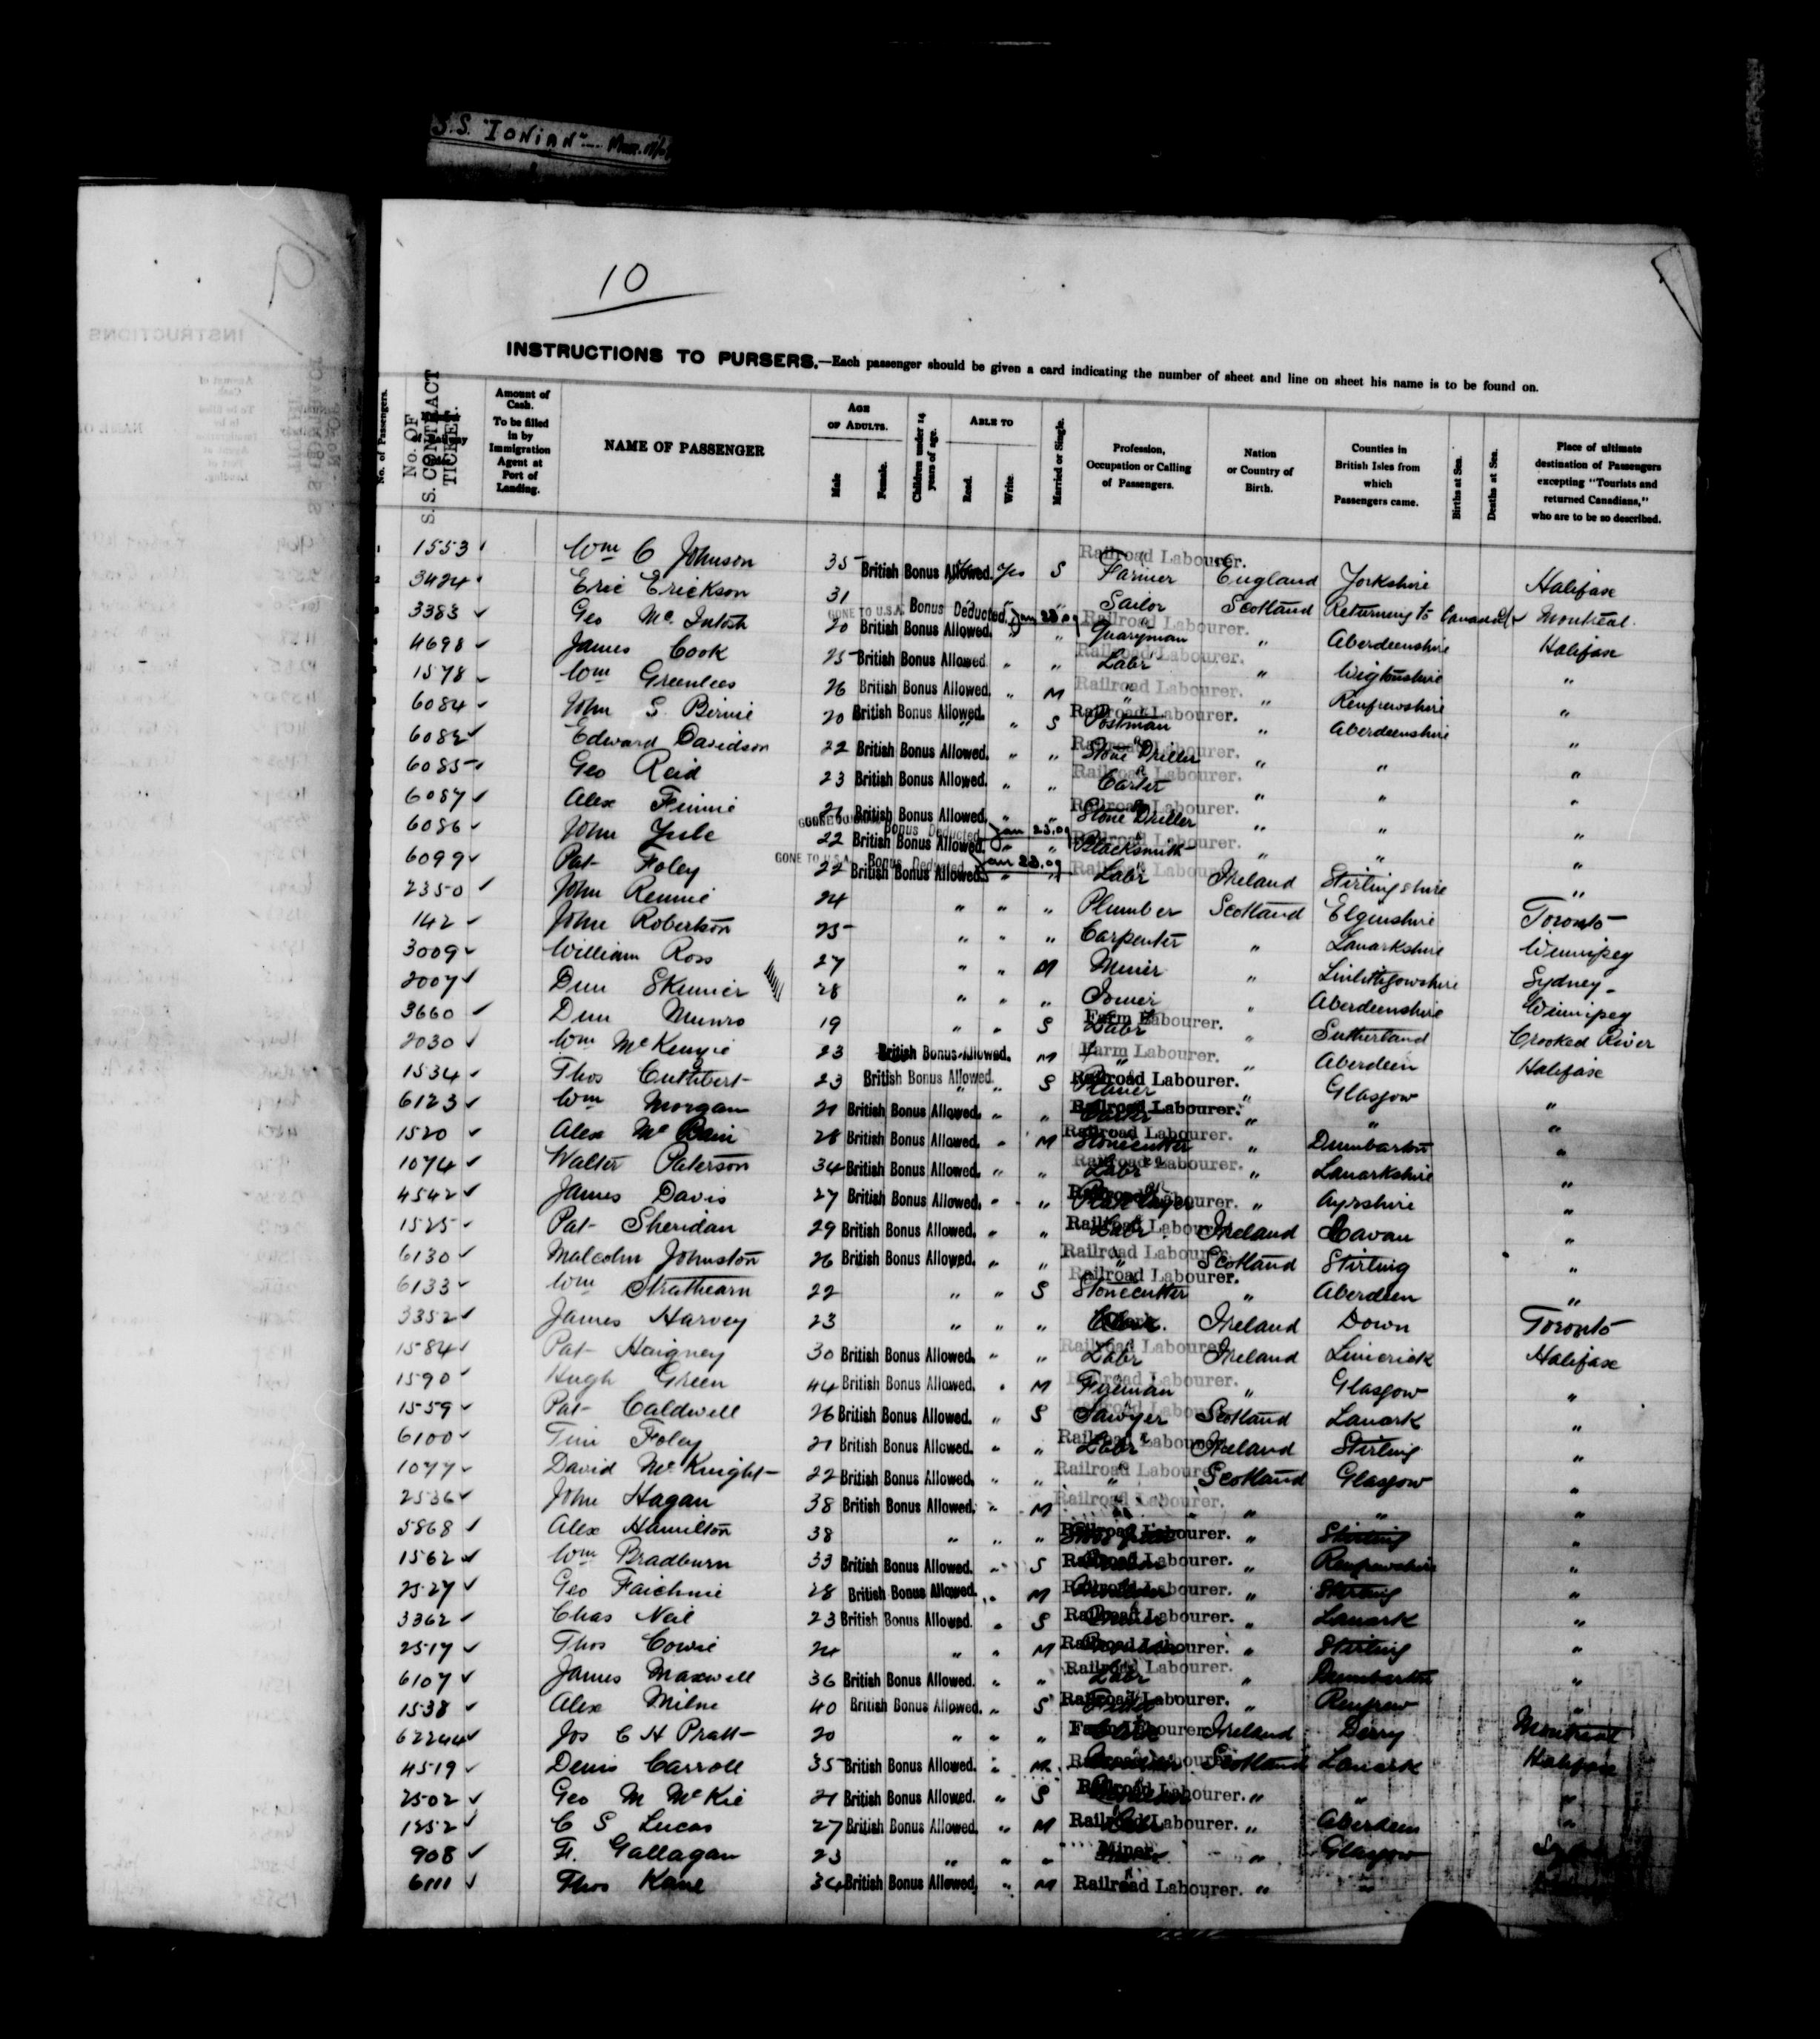 S.S. "IONIAN"
10
INSTRUCTIONS TO PURSERS.—Each passenger should be given a card indicating the number of sheet and line on sheet his name is to be found on.
No. of Passengers. No. OF S.S. CONTRACT TICKET. Amount of Cash. To be filled in by Immigration Agent at Port of Landing. NAME OF PASSENGER AGE OF ADULTS. Male Female. Children under 14 years of age. ABLE TO Read. Write. Married or Single. Profession, Occupation or Calling of Passengers. Nation or Country of Birth. Counties in British Isles from which Passengers came. Births at Sea. Deaths at Sea. Place of ultimate destination of Passengers excepting "Tourists and returned Canadians," who are to be so described.
1553 Wm C Johnson 35 British Bonus Allowed. Yes S Railroad Labourer. Farmer England Yorkshire Halifax
3424 Eric Erickson 31 " Sailor Scotland Returning to Canada Montreal.
3383 Geo McIntosh 20 GONE TO U.S.A. Bonus Deducted. Jan 23.09 British Bonus Allowed. " " Railroad Labourer. Quaryman " Aberdeenshire Halifax
4698 James Cook 25 British Bonus Allowed " " Railroad Labourer. Labr " Wigtonshire "
1578 Wm Greenlees 26 British Bonus Allowed. " M Railroad Labourer. " " Renfrewshire "
6084 John S. Birnie 20 British Bonus Allowed. " S Railroad Labourer. Postman " Aberdeenshire "
6082 Edward Davidson 22 British Bonus Allowed. " " Railroad Labourer. Stone Driller " " "
6085 Geo Reid 23 British Bonus Allowed. " " Railroad Labourer. Carter " " "
6087 Alex Finnie 21 British Bonus Allowed. " " Railroad Labourer. Stone Driller " " "
6086 John Yule 22 GONE TO U.S.A. Bonus Deducted Jan 23.09 British Bonus Allowed. " " Railroad Labourer. Blacksmith " " "
6099 Pat Foley 22 GONE TO U.S.A. Bonus Deducted Jan 23.09 British Bonus Allowed. " " Railroad Labourer. Labr Ireland Stirlingshire "
2350 John Rennie 24 " " " Plumber Scotland Elginshire Toronto
142 John Robertson 25 " " " Carpenter " Lanarkshire Winnipeg
3009 William Ross 27 " " M Miner " Linlithgowshire Sydney
2007 Dun Skinner 28 " " " Joiner " Aberdeenshire Winnipeg
3660 Dun Munro 19 " " S Farm Labourer. Labr " Sutherland Crooked River
2030 Wm McKenzie 23 British Bonus Allowed. M Farm Labourer. " " Aberdeen Halifax
1534 Thos Cuthbert 23 British Bonus Allowed. " S Railroad Labourer. " Glasgow "
6123 Wm Morgan 21 British Bonus Allowed. " " Railroad Labourer. " " "
1520 Alex McBain 28 British Bonus Allowed. " M Railroad Labourer. Stonecutter " Dumbarton "
1074 Walter Paterson 34 British Bonus Allowed. " " Railroad Labourer. Labr " Lanarkshire "
4542 James Davis 27 British Bonus Allowed. " " Railroad Labourer. Plate layer " Ayrshire "
1525 Pat Sheridan 29 British Bonus Allowed. " " Railroad Labourer. Labr Ireland Cavan "
6130 Malcolm Johnston 26 British Bonus Allowed. " " Railroad Labourer. " Scotland Stirling "
6133 Wm Strathearn 22 " " S Railroad Labourer. Stonecutter " Aberdeen "
3352 James Harvey 23 " " " Clerk. Ireland Down Toronto
1584 Pat Haigney 30 British Bonus Allowed. " " Railroad Labourer. Labr Ireland Limerick Halifax
1590 Hugh Green 44 British Bonus Allowed. " M Railroad Labourer. Fireman " Glasgow "
1559 Pat Caldwell 26 British Bonus Allowed. " S Railroad Labourer. Sawyer Scotland Lanark "
6100 Tim Foley 21 British Bonus Allowed. " " Railroad Labourer. Labr Ireland Stirling "
1077 David McKnight 22 British Bonus Allowed. " " Railroad Labourer. " Scotland Glasgow "
2536 John Hagan 38 British Bonus Allowed. " M Railroad Labourer. " " " "
5868 Alex Hamilton 38 " " " Railroad Labourer. " Stirling "
1562 Wm Bradburn 33 British Bonus Allowed. " S Railroad Labourer. " Renfrewshire "
2527 Geo Faichnie 28 British Bonus Allowed. " M Railroad Labourer. " Stirling "
3362 Chas Neil 23 British Bonus Allowed. " S Railroad Labourer. " Lanark "
2517 Thos Cowie 24 " " M Railroad Labourer. " Stirling "
6107 James Maxwell 36 British Bonus Allowed. " " Railroad Labourer. Labr " Dumbarton "
1538 Alex Milne 40 British Bonus Allowed. " S Railroad Labourer. " Renfrew "
62244 Jos C H Pratt 20 " " " Farm Labourer. Ireland Derry Montreal
4519 Denis Carroll 35 British Bonus Allowed. " M Railroad Labourer. Scotland Lanark Halifax
2502 Geo M McKie 21 British Bonus Allowed. " S Railroad Labourer. " " "
1252 C S Lucas 27 British Bonus Allowed. " M Railroad Labourer. " Aberdeen "
908 F. Gallagan 23 " " " Miner. " Glasgow
6111 Thos Kane 34 British Bonus Allowed. " M Railroad Labourer. " "